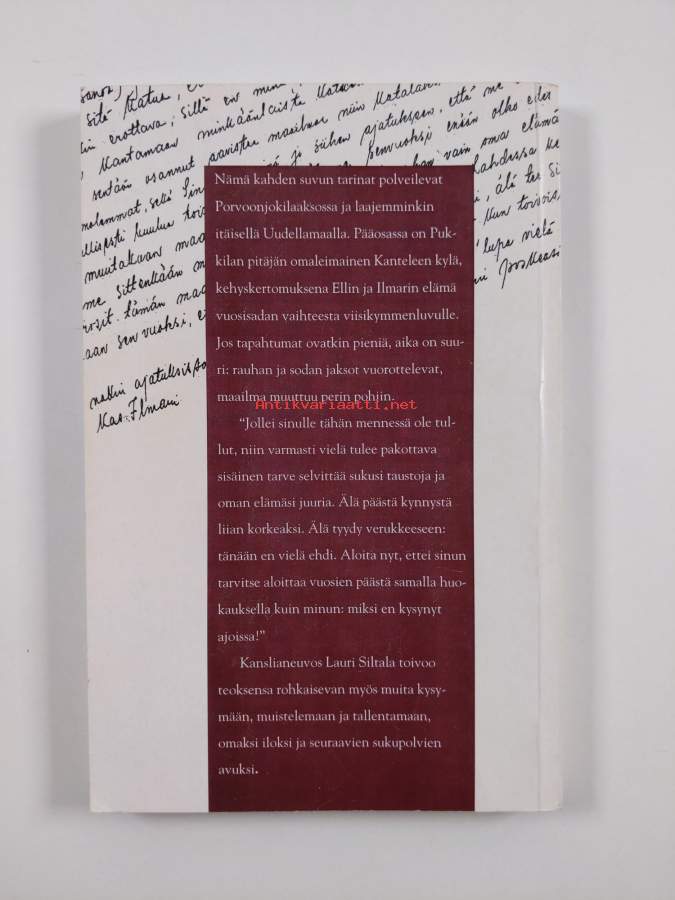 sitä
erottava, sillä en
Kantamaan minkäänlaista
sentään osannut aavistaa maailman näin
jo siihen ajatukseen, että me
senvuoksi enään olko
vain oma elämä
älä tee
Kun toivois
lupa vielä
muutakaan
me sittenkään
tämän
sen vuoksi,
Nämä kahden suvun tarinat polveilevat
Porvoonjokilaaksossa ja laajemminkin
itäisellä Uudellamaalla. Pääosassa on Puk-
kilan pitäjän omaleimainen Kanteleen kylä,
kehyskertomuksena Ellin ja Ilmarin elämä
vuosisadan vaihteesta viisikymmenluvulle.
Jos tapahtumat ovatkin pieniä, aika on suu-
ri: rauhan ja sodan jaksot vuorottelevat,
maailma muuttuu perin pohjin.
Antikvariaatti.net
“Jollei sinulle tähän mennessä ole tul-
lut, niin varmasti vielä tulee pakottava
sisäinen tarve selvittää sukusi taustoja ja
oman elämäsi juuria. Älä päästä kynnystä
liian korkeaksi. Älä tyydy verukkeeseen:
tänään en vielä ehdi. Aloita nyt, ettei sinun
tarvitse aloittaa vuosien päästä samalla huo-
kauksella kuin minun: miksi en kysynyt
ajoissa!”
Kanslianeuvos Lauri Siltala toivoo
teoksensa rohkaisevan myös muita kysy-
mään, muistelemaan ja tallentamaan,
omaksi iloksi ja seuraavien sukupolvien
avuksi.